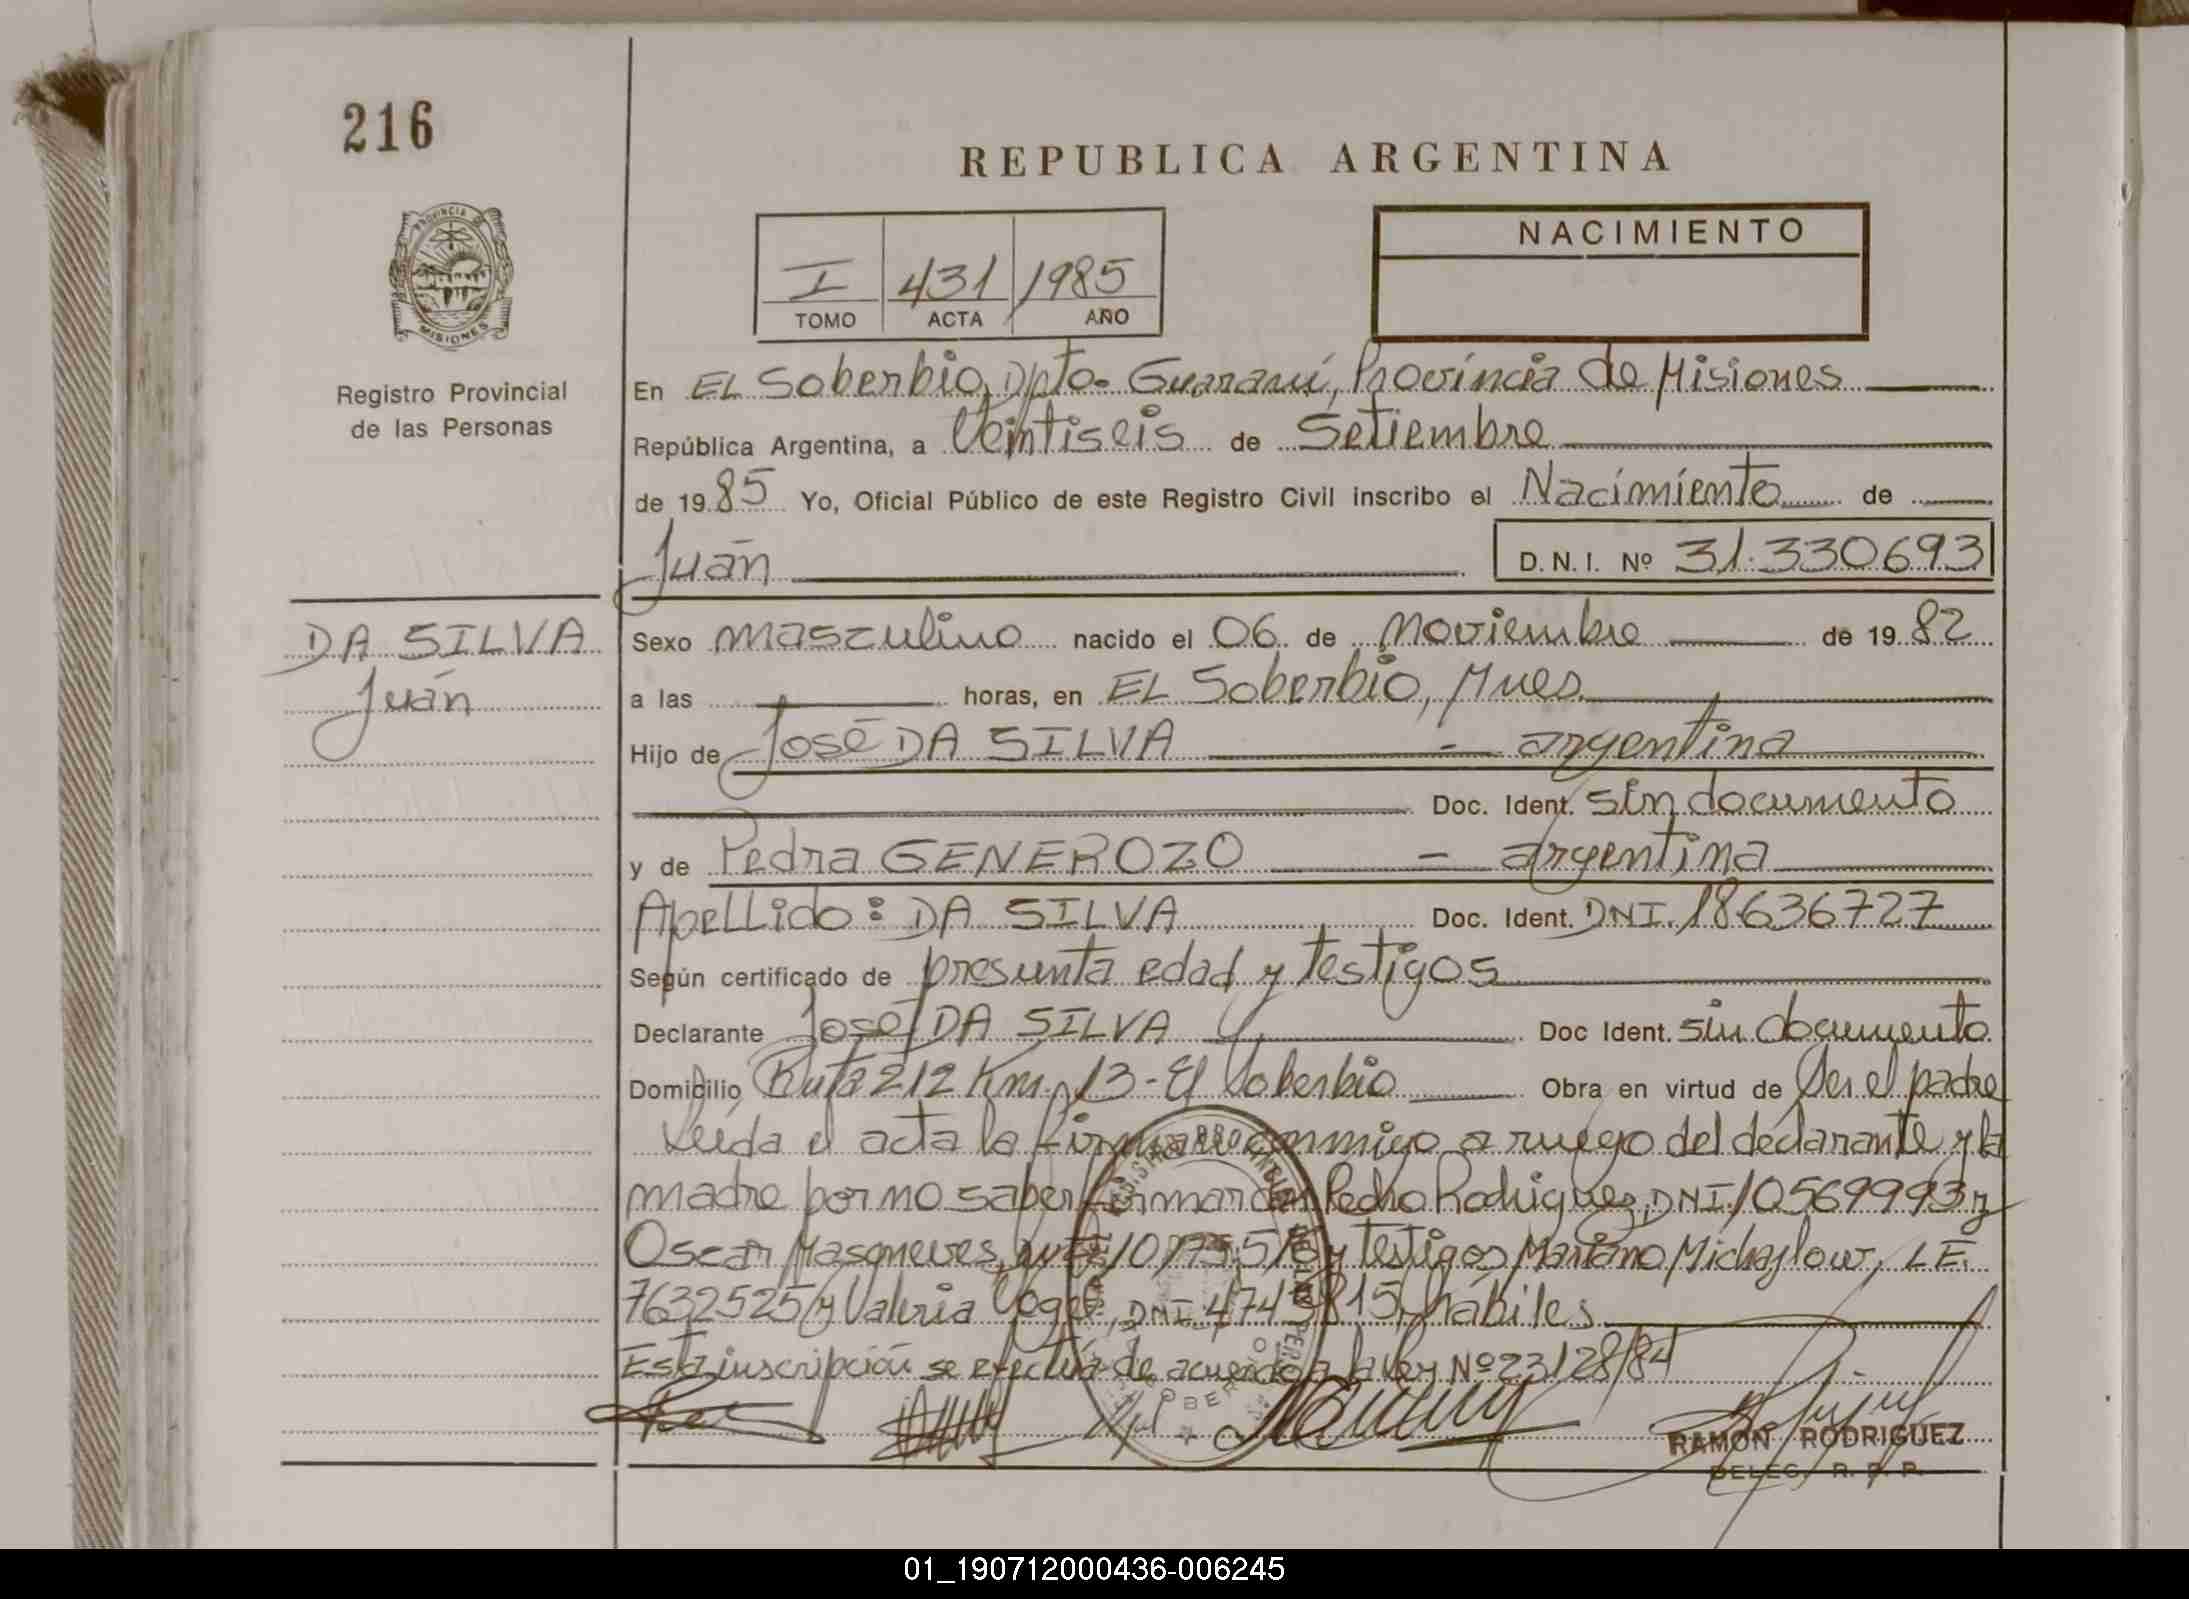 216
REPUBLICA ARGENTINA
PROVINCIA DE
MISIONES
Registro Provincial
de las Personas
I 431 1985
TOMO ACTA AÑO
NACIMIENTO
En EL Soberbio, Dpto. Guaraní, Provincia de Misiones
República Argentina, a Veintiseis de Setiembre
de 1985 Yo, Oficial Público de este Registro Civil inscribo el Nacimiento de
Juán D.N.I. Nº 31.330693
DA SILVA
Juán
Sexo masculino nacido el 06 de Noviembre de 1982
a las horas, en EL Soberbio, Mnes
Hijo de José DA SILVA - argentina
Doc. Ident. sin documento
y de Pedra GENEROZO - argentina
Apellido: DA SILVA Doc. Ident. DNI. 18636727
Según certificado de presunta edad y testigos
Declarante José DA SILVA Doc Ident. sin documento
Domicilio Ruta 212 Km. 13 - El Soberbio Obra en virtud de Ser el padre
Leída el acta la firman conmigo a ruego del declarante y la
madre por no saber firmar don Pedro Rodriguez, DNI. 10569993 y
Oscar y testigos Mariano Michajlow, L.E.
7632525 y Valeria DNI hábiles
Esta inscripción se efectúa de acuerdo a la ley Nº 23128/84
RAMON RODRIGUEZ
DELEG. R. P. P.
01_190712000436-006245